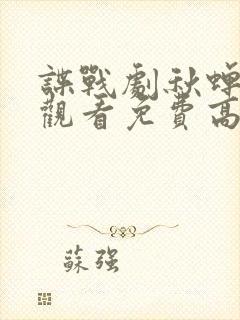 諜戰劇秋蟬
觀看免費高
蘇强